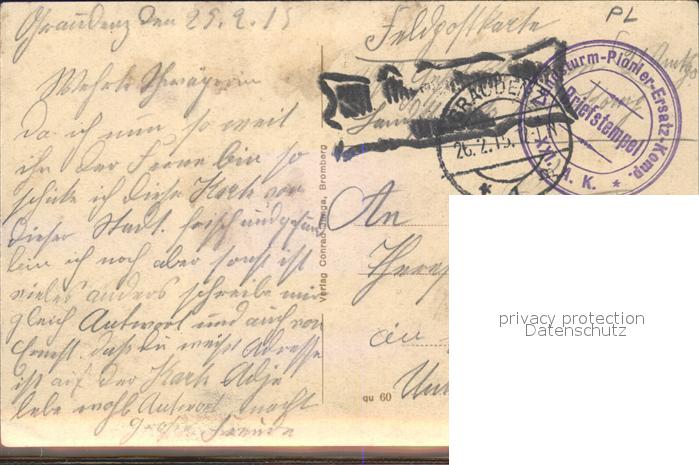 Graudenz den 25.2.15
Feldpostkarte
PL
Werte Schwägerin
Da ich nun so weit
in der Ferne bin so
schicke ich diese Karte von
dieser Stadt. frisch und gesund
bin ich noch aber sonst ist
vieles anders schreibe mir
gleich Antwort und auch von
Ernst. daß du weißt Adresse
ist auf der Karte Adje
lebe wohl Antwort macht
Große Freude
Landsturm-Pionier-Ersatz-Komp.
Briefstempel
XVII. A. K. *
GRAUDENZ
26.2.15.
Verlag Conrad Junga, Bromberg
An
in
qu 60
privacy protection
Datenschutz